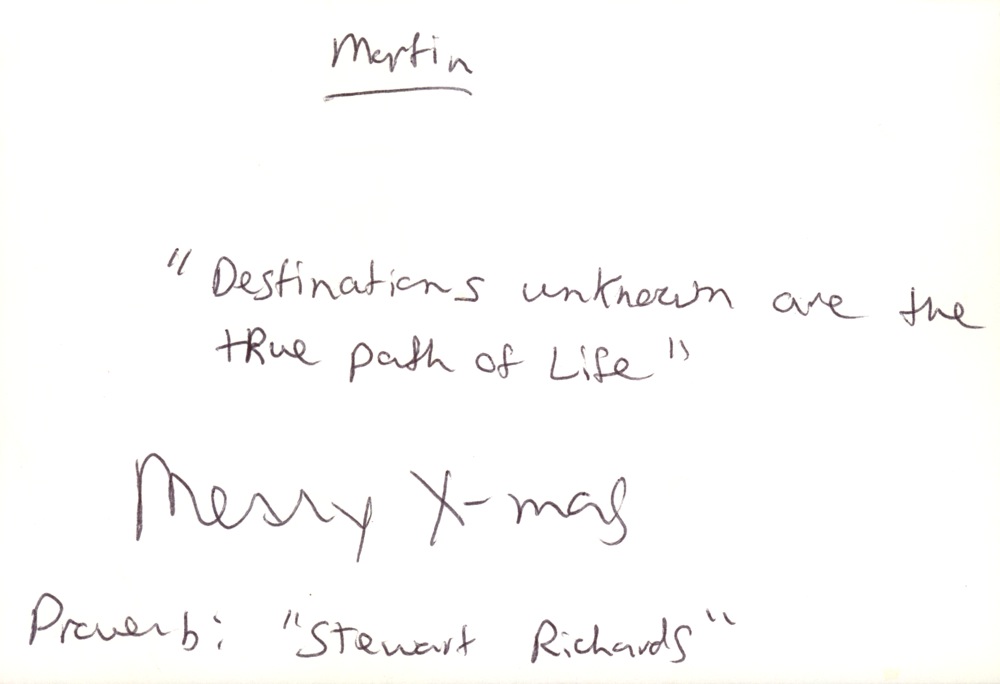 Martin
"Destinations unknown are the
tRue path of Life"
Merry X-mas
Proverb: "Stewart Richards"